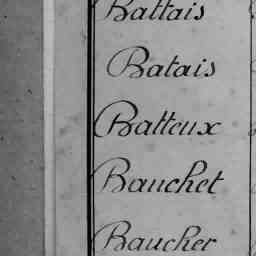 Battais
Batais
Batteux
Bauchet
Baucher